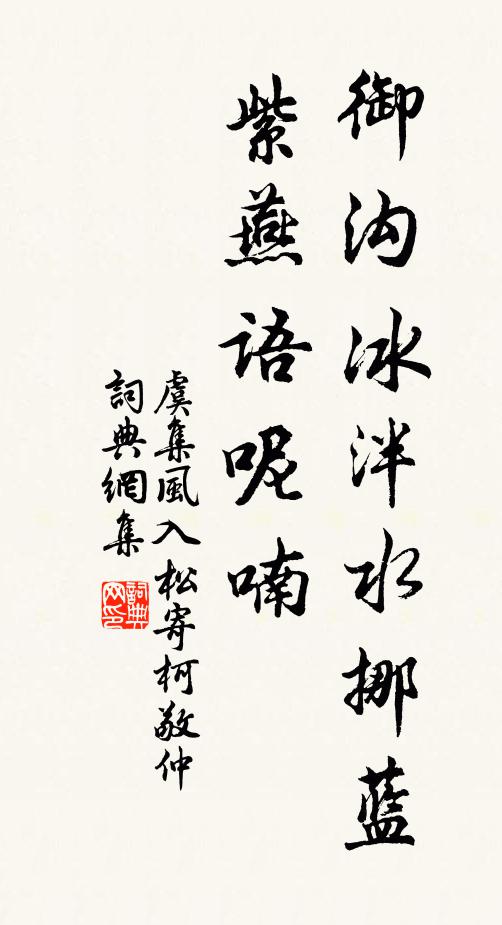 御沟冰泮水挪蓝
紫燕語呢喃
虞集風入松寄柯敬仲
詞典網集
詞典网印